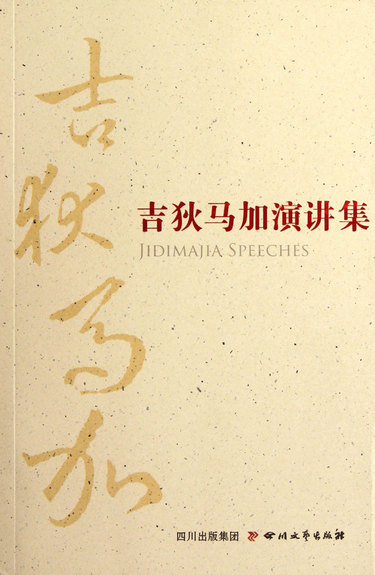 吉狄马加
吉狄马加演讲集
JIDIMAJIA SPEECHES
四川出版集团 四川文艺出版社